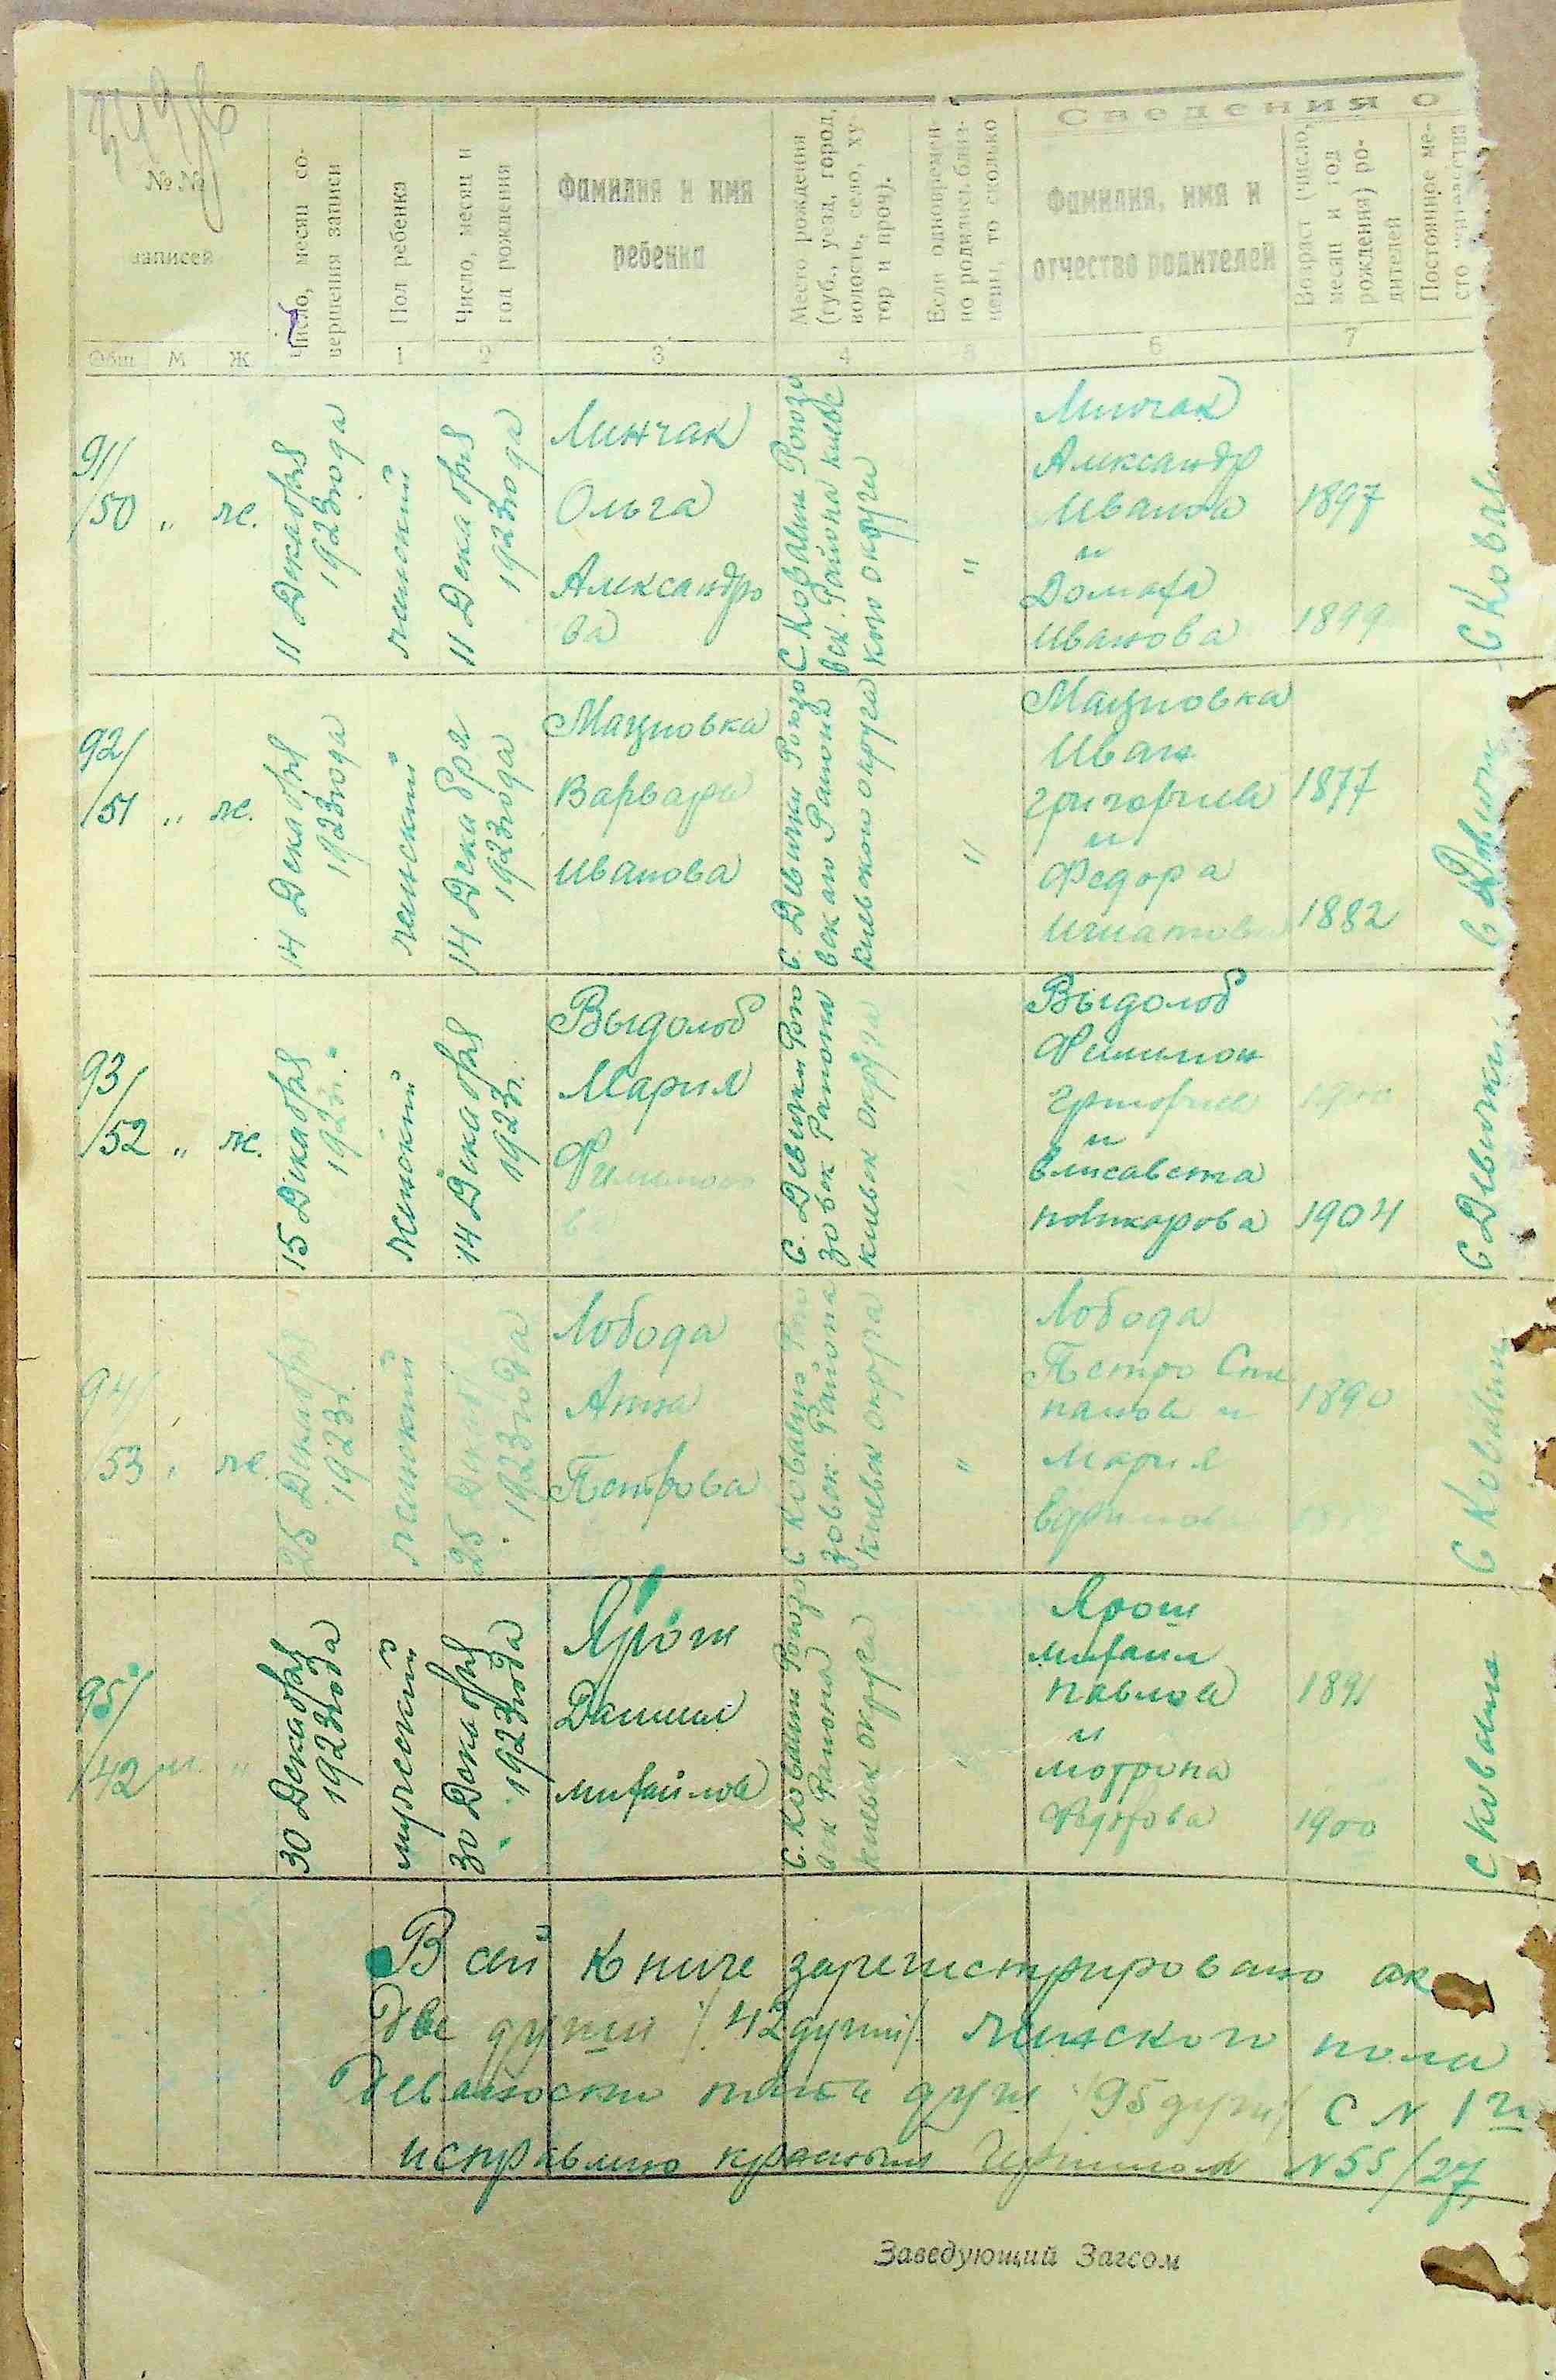 Сведения о
№№
записей
Общ. М Ж
Число, месяц со-
вершения записи
Пол ребенка
1
Число, месяц и
год рождения
2
Фамилия и имя
ребенка
3
Место рождения
(губ., уезд, город,
волость, село, ху-
тор и проч).
4
Если одновремен-
но родились близ-
нецы, то сколько
5
Фамилия, имя и
отчество родителей
6
Возраст (число,
месяц и год
рождения) ро-
дителей
7
Постоянное ме-
сто
91/
/50 " ж.
11 Декабря
1923 года
женский
11 Декабря
1923 года
Линчак
Ольга
Александро
ва
С Ковалин Рогозо
вск. Района киевс
кого округи
"
Линчак
Александр
Иванов
и
Домаха
Иванова
1897
1899
С Ковалин
92/
/51 " ж.
14 Декабря
1923 года
женский
14 Декабря
1923 года
Мацновка
Варвара
Иванова
с. Девички Рогозо
вского Района
киевского округа
"
Мацновка
Иван
григориев
и
Федора
игнатова
1877
1882
93/
/52 " ж.
15 Декабря
1923 г.
Женский
14 Декабря
1923 г.
Выдолоб
Мария
Филимоно
ва
С. Девички Рого
зовск Района
киевск округа
Выдолоб
Филимон
григориев
и
Елисавета
поликарова
1904
С Девички
94/
/53 " ж.
25 Декабря
1923 г.
женский
25 Декабря
1923 года
Лобода
Анна
Петрова
С Ковалин Рого
зовск. Района
киевск округа
"
Лобода
Петро Сте
панов и
Мария
1890
С Ковалин
95/
/42 м. "
30 Декабря
1923 года
мужеский
30 Декабря
1923 года
Ярош
Даниил
михайлов
С. Ковалин Рогозо
вск Района
киевск округа
Ярош
михаил
павлов
и
мотрона
Федорова
1891
1900
с ковалин
В сей книге зарегистрировано
Две души /42 души/ женского пола
Девяносто пять душ /95 душ/ С N 1 го
исправлено красными Чернилом N 55/27,
Заведующий Загсом